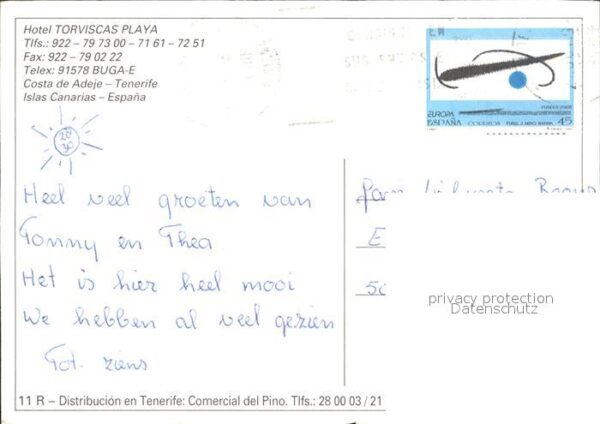 Hotel TORVISCAS PLAYA
Tlfs.: 922 – 79 73 00 - 71 61 - 72 51
Fax: 922 – 79 02 22
Telex: 91578 BUGA-E
Costa de Adeje – Tenerife
Islas Canarias – España
EUROPA
ESPAÑA CORREOS 45
Heel veel groeten van
Tonny en Thea
Het is hier heel mooi
We hebben al veel gezien
Tot ziens
Fam
E
50
privacy protection
Datenschutz
11 R – Distribución en Tenerife: Comercial del Pino. Tlfs.: 28 00 03 / 21